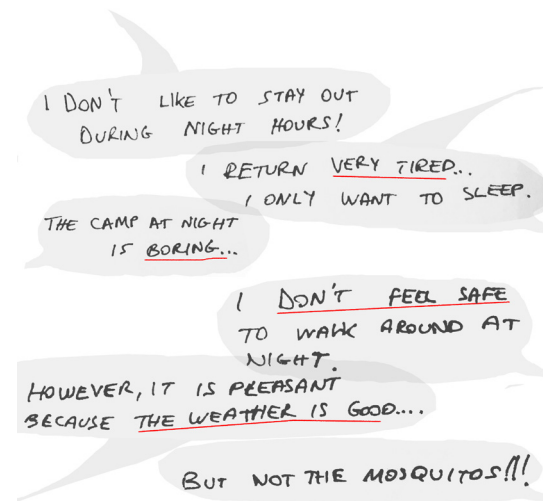 I DON'T LIKE TO STAY OUT
DURING NIGHT HOURS!
I RETURN VERY TIRED...
I ONLY WANT TO SLEEP.
THE CAMP AT NIGHT
IS BORING...
I DON'T FEEL SAFE
TO WALK AROUND AT
NIGHT.
HOWEVER, IT IS PLEASANT
BECAUSE THE WEATHER IS GOOD....
BUT NOT THE MOSQUITOS!!!